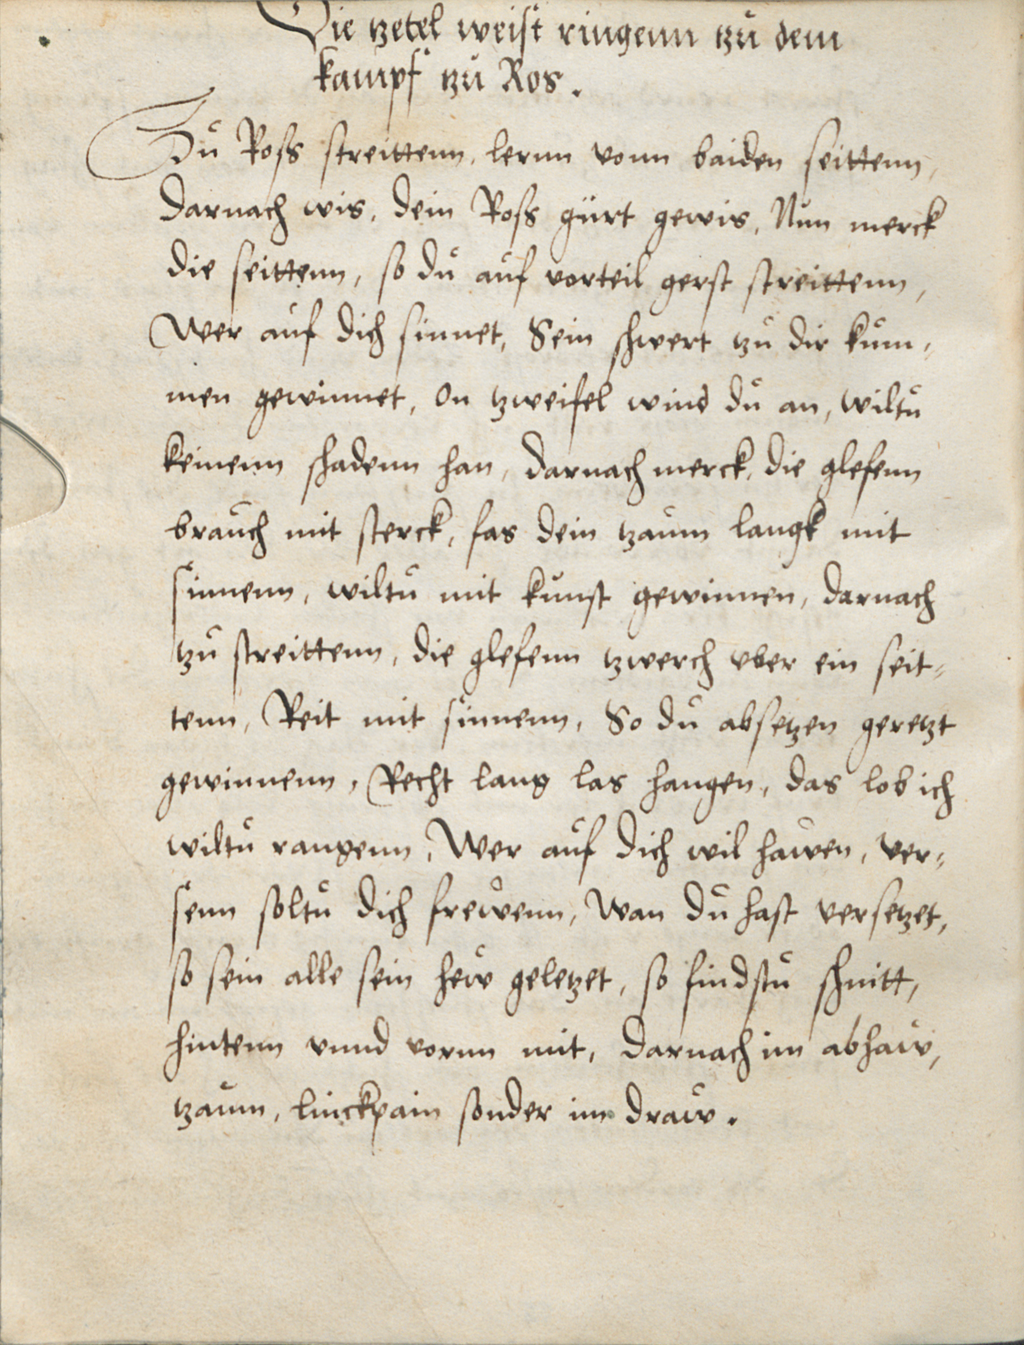 Die tzetel weist ringenn tzu dem
kampf tzu Ros.
Zu Ross streittenn, lernn vonn baiden seittenn,
darnach wis, dein Ross gürt gewis, Nun merck
die seittenn, so du auf vorteil gerst streittenn,
Wer auf dich sinnet, Sein schwert tzu dir kum-
men gewinnet, on tzweifel wind du an, wiltu
keinenn schadenn han, darnach merck, die glefenn
brauch mit sterck, fas dein tzaum langk mit
sinnenn, wiltu mit kunst gewinnen, darnach
tzu streittenn, die glefenn tzwerch vber ein seit-
tenn, Reit mit sinnenn, So du absetzen geretzt
gewinnenn, Recht lang las hangen, das lob ich
wiltu rangenn, Wer auf dich wil hawen, ver-
senn soltu dich frewenn, Wan du hast versetzet,
so sein alle sein hew geletzet, so findstu schnitt,
hintenn vnnd vornn mit, darnach im abhaw,
tzaum, linckpain sonder im draw.